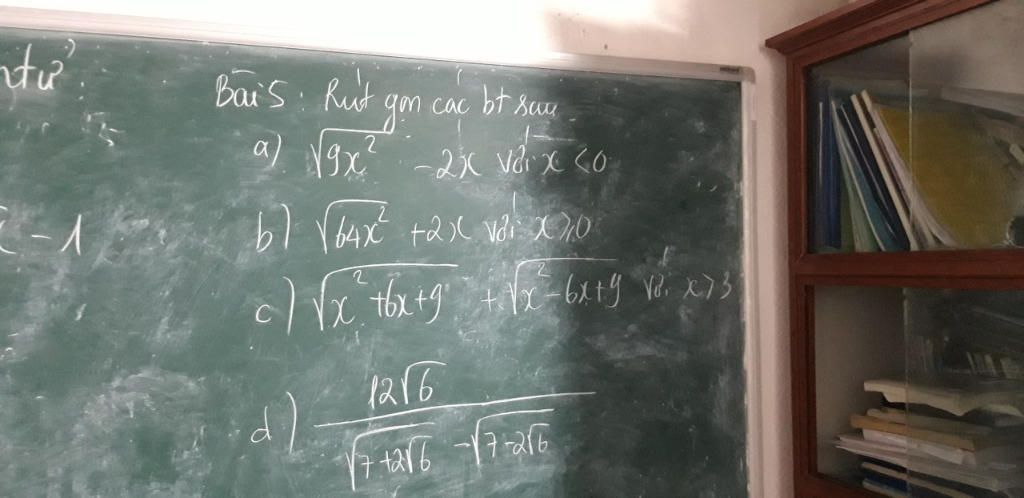 ntử:
Bài 5: Rút gọn các bt sau
a) √9x² - 2x với x < 0
- 1
b) √64x² + 2x với x ≥ 0
c) √x² + 6x + 9 + √x² - 6x + 9 với x > 3
d) 12√6 / √7 + 2√6 - √7 - 2√6